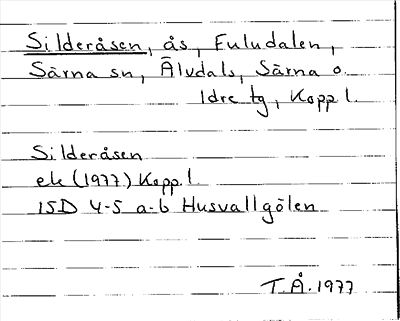 Silderåsen, ås, Fuludalen,
Särna sn, Älvdals, Särna o
Idre tg, Kopp l.
Silderåsen
ek (1977) Kopp. l
15D 4-5 a-b Husvallgölen
T.Å. 1977